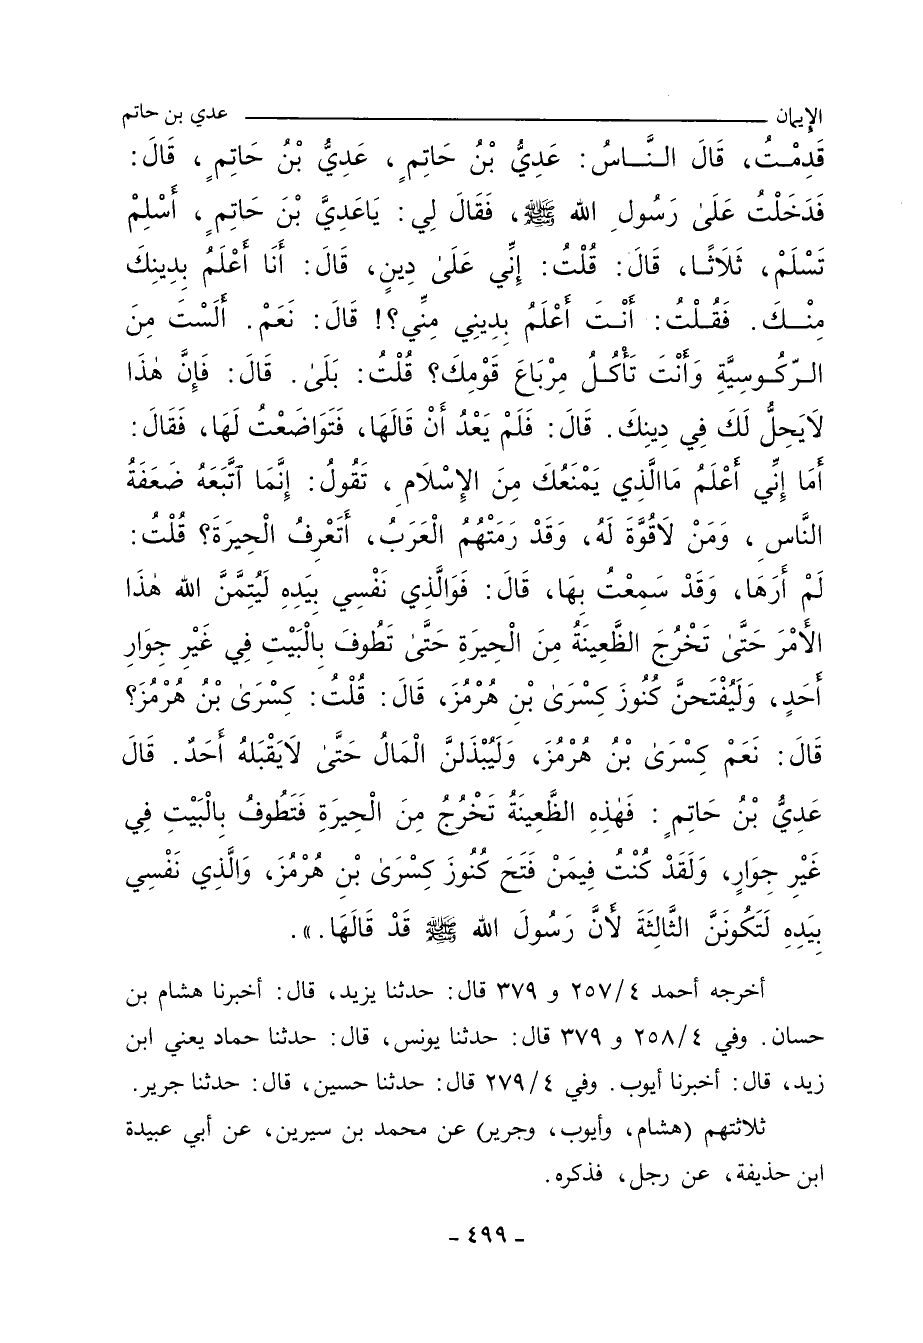 الإيمان ــــــــــــــــــــ عدي بن حاتم
قَدِمْتُ، قَالَ النَّاسُ: عَدِيُّ بْنُ حَاتِمٍ، عَدِيُّ بْنُ حَاتِمٍ، قَالَ:
فَدَخَلْتُ عَلَىٰ رَسُولِ الله ﷺ، فَقَالَ لِي: يَاعَدِيَّ بْنَ حَاتِمٍ، أَسْلِمْ
تَسْلَمْ، ثَلَاثًا، قَالَ: قُلْتُ: إِنِّي عَلَىٰ دِينٍ، قَالَ: أَنَا أَعْلَمُ بِدِينِكَ
مِنْكَ. فَقُلْتُ: أَنْتَ أَعْلَمُ بِدِينِي مِنِّي؟! قَالَ: نَعَمْ. أَلَسْتَ مِنَ
الرَّكُوسِيَّةِ وَأَنْتَ تَأْكُلُ مِرْبَاعَ قَوْمِكَ؟ قُلْتُ: بَلَىٰ. قَالَ: فَإِنَّ هٰذَا
لَايَحِلُّ لَكَ فِي دِينِكَ. قَالَ: فَلَمْ يَعْدُ أَنْ قَالَهَا، فَتَوَاضَعْتُ لَهَا، فَقَالَ:
أَمَا إِنِّي أَعْلَمُ مَاالَّذِي يَمْنَعُكَ مِنَ الإِسْلَامِ، تَقُولُ: إِنَّمَا اتَّبَعَهُ ضَعَفَةُ
النَّاسِ، وَمَنْ لَاقُوَّةَ لَهُ، وَقَدْ رَمَتْهُمُ الْعَرَبُ، أَتَعْرِفُ الْحِيرَةَ؟ قُلْتُ:
لَمْ أَرَهَا، وَقَدْ سَمِعْتُ بِهَا، قَالَ: فَوَالَّذِي نَفْسِي بِيَدِهِ لَيُتِمَّنَّ الله هٰذَا
الأَمْرَ حَتَّىٰ تَخْرُجَ الظَّعِينَةُ مِنَ الْحِيرَةِ حَتَّىٰ تَطُوفَ بِالْبَيْتِ فِي غَيْرِ جِوَارِ
أَحَدٍ، وَلَيُفْتَحَنَّ كُنُوزَ كِسْرَىٰ بْنِ هُرْمُزَ، قَالَ: قُلْتُ: كِسْرَىٰ بْنُ هُرْمُزَ؟
قَالَ: نَعَمْ كِسْرَىٰ بْنُ هُرْمُزَ، وَلَيُبْذَلَنَّ الْمَالُ حَتَّىٰ لَايَقْبَلَهُ أَحَدٌ. قَالَ
عَدِيُّ بْنُ حَاتِمٍ: فَهٰذِهِ الظَّعِينَةُ تَخْرُجُ مِنَ الْحِيرَةِ فَتَطُوفُ بِالْبَيْتِ فِي
غَيْرِ جِوَارٍ، وَلَقَدْ كُنْتُ فِيمَنْ فَتَحَ كُنُوزَ كِسْرَىٰ بْنِ هُرْمُزَ، وَالَّذِي نَفْسِي
بِيَدِهِ لَتَكُونَنَّ الثَّالِثَةَ لأَنَّ رَسُولَ الله ﷺ قَدْ قَالَهَا.».
أخرجه أحمد ٤/٢٥٧ و ٣٧٩ قال: حدثنا يزيد، قال: أخبرنا هشام بن
حسان. وفي ٤/٢٥٨ و ٣٧٩ قال: حدثنا يونس، قال: حدثنا حماد يعني ابن
زيد، قال: أخبرنا أيوب. وفي ٤/٢٧٩ قال: حدثنا حسين، قال: حدثنا جرير.
ثلاثتهم (هشام، وأيوب، وجرير) عن محمد بن سيرين، عن أبي عبيدة
ابن حذيفة، عن رجل، فذكره.
- ٤٩٩ -